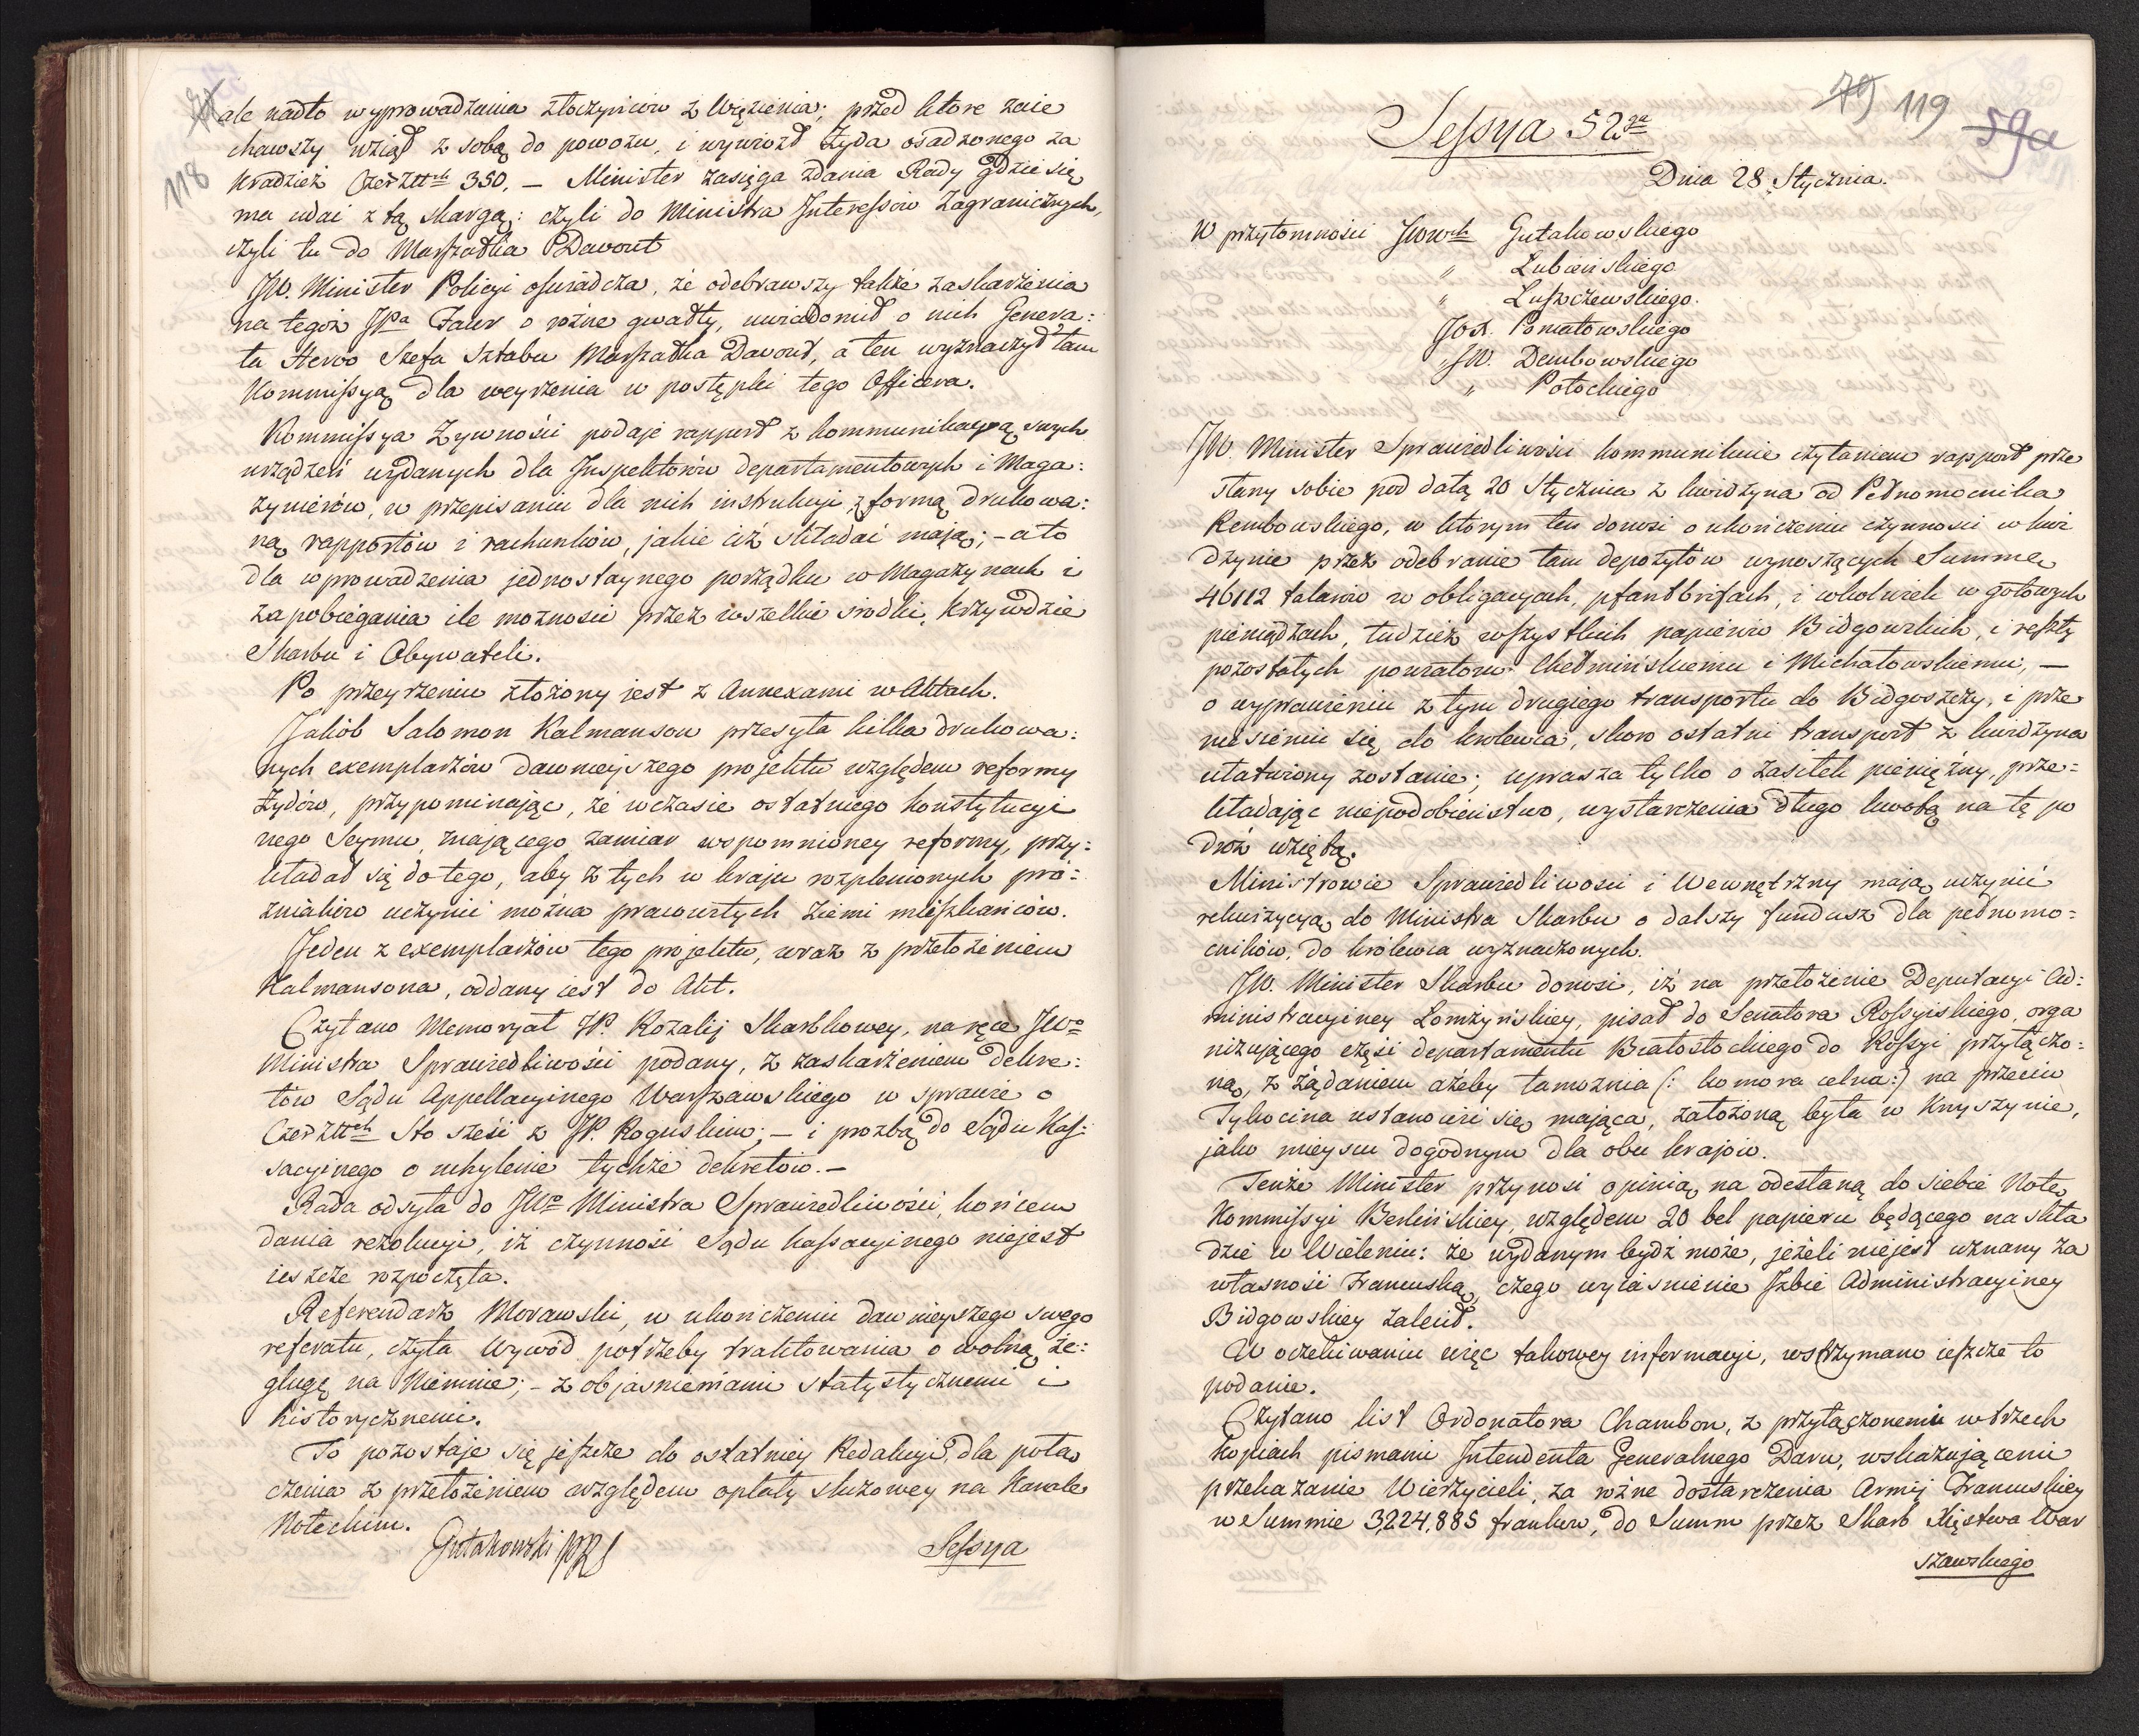 118
ale nadto wyprowadzania złoczyńców z Więzienia; przed które zaie
chawszy wziął z sobą do powozu, i wywiózł Żyda osadzonego za
kradzież Czer Złt<sup>ch</sup> 350. — Minister zasięga zdania Rady gdzie się
ma udai z tą skargą: czyli do Ministra Interessów Zagranicznych,
czyli tu do Marszałka Davout
JW. Minister Policyi oświadcza, że odebrawszy także zaskarżenia
na tegoż JPa Faur o różne gwałty, uwiadomił o nich Genera:
ła Hervo Szefa Sztabu Marszałka Davout, a ten wyznaczył tam
Kommissyą dla weyrzenia w postępki tego Officera.
Kommissya Żywności podaje rapport z kommunikacyą swych
urządzeń wydanych dla Inspektorów departamentowych i Maga:
zynierów, w przepisaniu dla nich instrukcyi z formą drukowa:
ną rapportów i rachunków, jakie ciż składać mają; – a to
dla wprowadzenia jednostaynego porządku w Magazynach i
zapobiegania ile możności przez wszelkie środki, krzywdzie
Skarbu i Obywateli.
Po przeyrzeniu złożony jest z Annexami w Aktach.
Jakób Salomon Kalmanson przesyła kilka drukowa:
nych exemplarzów dawnieyszego projektu względem reformy
Żydów, przypominając, że w czasie ostatniego konstytucyi
nego Seymu, mającego zamiar wspomnioney reformy, przy:
kładał się do tego, aby z tych w kraju rozplenionych pró:
żniaków uczynić można prawowitych Ziemi mieszkańców.
Jeden z exemplarzów tego projektu, wraz z przełożeniem
Kalmansona, oddany iest do Akt.
Czytano Memoryał JP. Rozalij Skarbkowey, na ręce JWo
Ministra Sprawiedliwości podany, z zaskarżeniem dekre:
tów Sądu Appellacyinego Warszawskiego w sprawie o
Czer Złt<sup>ch</sup> Sto sześć z JP. Roguskim; – i prozbą do Sądu Kas:
sacyinego o uchylenie tychże dekretów. –
Rada odsyła do JWo Ministra Sprawiedliwości, końcem
dania rezolucyi, iż czynność Sądu kassacyinego niejest
ieszcze rozpoczęta.
Referendarz Morawski, w ukończeniu dawnieyszego swego
referatu, czyta Wywód potrzeby traktowania o wolną że:
glugę na Niemnie; – z objasnieniami statystycznemi i
historycznemi.
To pozostaje się jeszcze do ostatniey Redakcyi, dla połą
czenia z przełożeniem względem opłaty służowey na Kanale
Noteckim.
Gutakowski
Sessya
79 119 59a
Sessya 52ga
Dnia 28 Stycznia.
W przytomności JWW<sup>ch</sup> Gutakowskiego
" Lubieńskiego
" Luszczewskiego.
JOX. Poniatowskiego
JW. Dembowskiego
" Potockiego
JW. Minister Sprawiedliwości kommunikuie czytaniem rapport prze
słany sobie pod datą 20 Stycznia z Kwidzyna od Pełnomocnika
Rembowskiego, w którym ten donosi o ukończeniu czynności w Kwi
dzynie przez odebranie tam depozytów wynoszących Summę
46112 talarów w obligacyach, pfantbrifach, i cokolwiek w gotowych
pieniądzach, tudzież wszystkich papierów Bidgowskich, i reszty
pozostałych powiatowi Chełmińskiemu i Michałowskiemu, —
o wyprawieniu z tym drugiego transportu do Bidgoszczy, i prze
niesieniu się do Królewca, skoro ostatni transport z Kwidzyna
ułatwiony zostanie; uprasza tylko o zasiłek pieniężny, prze=
kładając niepodobieństwo, wystarczenia długo kwotą na tę po
dróż wziętą.
Ministrowie Sprawiedliwości i Wewnętrzny mają uczynić
rekwizycyą do Ministra Skarbu o dalszy fundusz dla pełnomo=
cników, do królewca wyznaczonych.
JW. Minister Skarbu donosi, iż na przełożenie Deputacyi Ad:
ministracyiney Łomżyńskiey, pisał do Senatora Rossyiskiego, orga
nizującego część departamentu Białostockiego do Rossyi przyłączo:
ną, z żądaniem ażeby tamoznia (: komora celna:) na przeciw
Tykocina ustanowić się mająca, założoną była w Knyszynie,
jako mieyscu dogodnym dla obu krajów.
Tenże Minister przynosi opinią na odesłaną do siebie Notę
Kommissyi Berlińskiey, względem 20 bel papieru będącego na skła
dzie w Wieleniu: że wydanym bydź może, jeżeli niejest uznany za
własność Francuską, czego wyiaśnienie Izbie Administracyiney
Bidgowskiey zalecił.
W oczekiwaniu więc takowey informacyi, wstrzymano ieszcze to
podanie.
Czytano list Ordonatora Chambon, z przyłączonemi w trzech
kopiach pismami Intendenta Generalnego Daru, wskazującemi
przekazanie Wierzycieli, za różne dostarczenia Armij Francuskiey
w Summie 3,224,885 franków, do Summ przez Skarb Xięstwa War
szawskiego